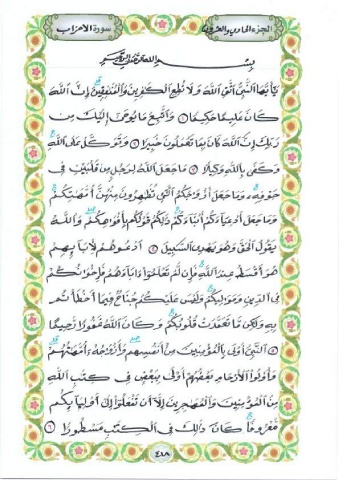 سورة الأحزاب
الجزء الحادي والعشرون
بسم الله الرحمن الرحيم
يَٰأَيُّهَا النَّبِيُّ اتَّقِ اللَّهَ وَلَا تُطِعِ الْكَٰفِرِينَ وَالْمُنَٰفِقِينَ إِنَّ اللَّهَ
كَانَ عَلِيمًا حَكِيمًا ١ وَاتَّبِعْ مَا يُوحَىٰ إِلَيْكَ مِن
رَّبِّكَ إِنَّ اللَّهَ كَانَ بِمَا تَعْمَلُونَ خَبِيرًا ٢ وَتَوَكَّلْ عَلَى اللَّهِ
وَكَفَىٰ بِاللَّهِ وَكِيلًا ٣ مَّا جَعَلَ اللَّهُ لِرَجُلٍ مِّن قَلْبَيْنِ فِي
جَوْفِهِ وَمَا جَعَلَ أَزْوَٰجَكُمُ الَّٰئِي تُظَٰهِرُونَ مِنْهُنَّ أُمَّهَٰتِكُمْ
وَمَا جَعَلَ أَدْعِيَاءَكُمْ أَبْنَاءَكُمْ ذَٰلِكُمْ قَوْلُكُم بِأَفْوَٰهِكُمْ وَاللَّهُ
يَقُولُ الْحَقَّ وَهُوَ يَهْدِي السَّبِيلَ ٤ ادْعُوهُمْ لِأٓبَائِهِمْ
هُوَ أَقْسَطُ عِندَ اللَّهِ فَإِن لَّمْ تَعْلَمُوا ءَابَاءَهُمْ فَإِخْوَٰنُكُمْ
فِي الدِّينِ وَمَوَٰلِيكُمْ وَلَيْسَ عَلَيْكُمْ جُنَاحٌ فِيمَا أَخْطَأْتُم
بِهِ وَلَٰكِن مَّا تَعَمَّدَتْ قُلُوبُكُمْ وَكَانَ اللَّهُ غَفُورًا رَّحِيمًا
٥ النَّبِيُّ أَوْلَىٰ بِالْمُؤْمِنِينَ مِنْ أَنفُسِهِمْ وَأَزْوَٰجُهُ أُمَّهَٰتُهُمْ
وَأُولُوا الْأَرْحَامِ بَعْضُهُمْ أَوْلَىٰ بِبَعْضٍ فِي كِتَٰبِ اللَّهِ
مِنَ الْمُؤْمِنِينَ وَالْمُهَٰجِرِينَ إِلَّا أَن تَفْعَلُوا إِلَىٰ أَوْلِيَائِكُم
مَّعْرُوفًا كَانَ ذَٰلِكَ فِي الْكِتَٰبِ مَسْطُورًا ٦
٤١٨